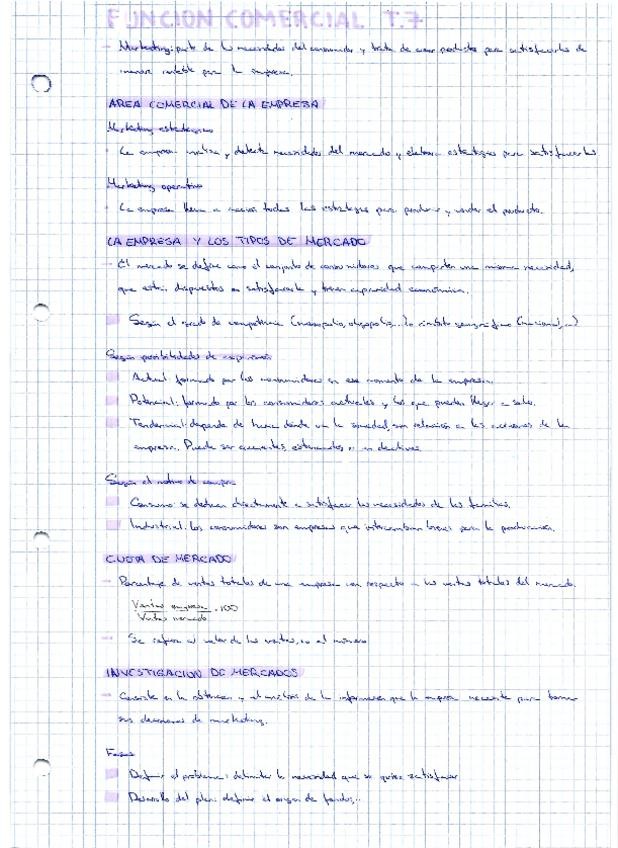 FUNCION COMERCIAL T.7
- Marketing: parte de las necesidades del consumidor y trata de crear productos para satisfacerlas de
manera rentable para la empresa.
AREA COMERCIAL DE LA EMPRESA
Marketing estratégico
· La empresa analiza y detecta necesidades del mercado y elabora estrategias para satisfacerlas
Marketing operativo
· La empresa lleva a todas las estrategias para y vender el producto.
LA EMPRESA Y LOS TIPOS DE MERCADO
- El mercado se define como el conjunto de consumidores que comparten una misma necesidad,
que estén dispuestos a satisfacerla y tienen capacidad económica.
Según el grado de competencia (monopolio, oligopolio...) o ámbito geográfico (nacional,...)
Según posibilidades de expansión
Actual: formado por los consumidores en ese momento de la empresa.
Potencial: formado por los consumidores actuales y los que pueden llegar a serlo.
Tendencial: depende de hacia donde va la sociedad, con relación a las acciones de la
empresa. Puede ser crecientes, estancados, o en declive.
Según el motivo de compra
Consumo: se dedican directamente a satisfacer las necesidades de las familias.
Industrial: los consumidores son empresas que intercambian bienes para la producción.
CUOTA DE MERCADO
- Porcentaje de ventas totales de una empresa con respecto a las ventas totales del mercado.
Ventas empresa . 100
Ventas mercado
- Se refiere al valor de las ventas, no al número
INVESTIGACION DE MERCADOS
- Consiste en la obtencion y el analisis de la informacion que la empresa necesita para tomar
sus decisiones de marketing.
Fases
Definir el problema: delimitar la necesidad que se quiere satisfacer
Desarrollo del plan: definir el origen de fondos,..